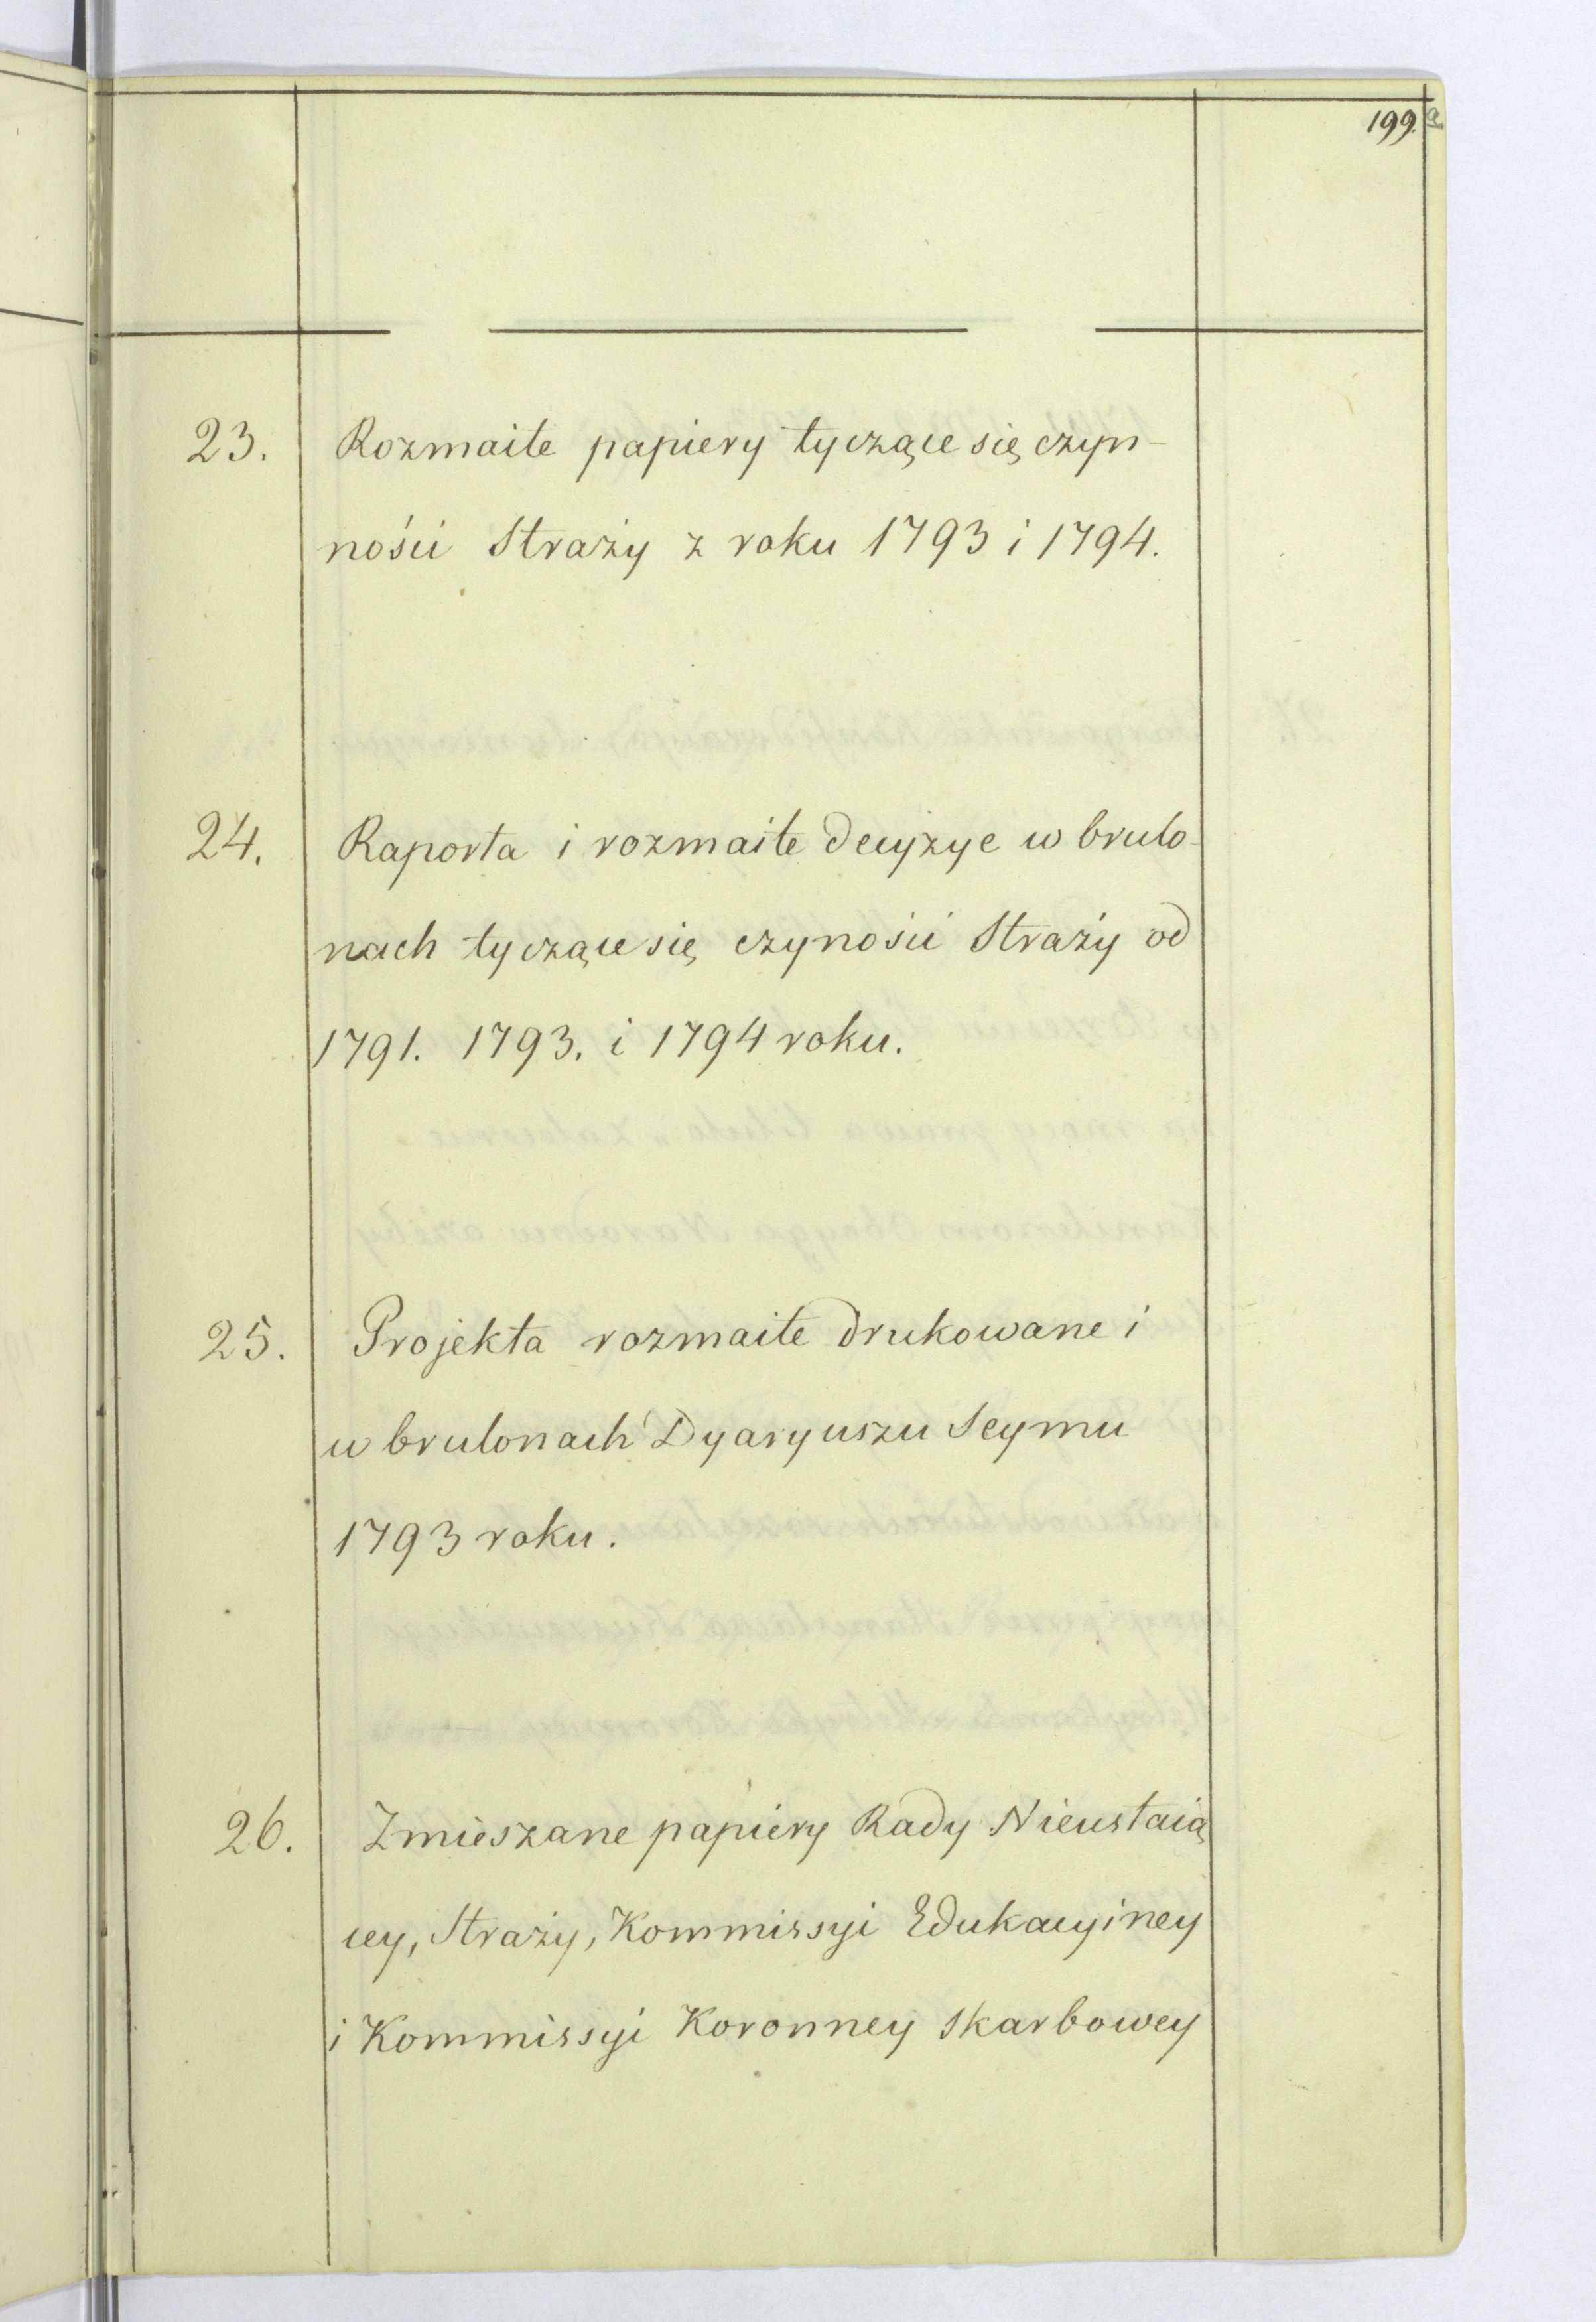 199.a
23. Rozmaite papiery tyczące się czyn-
ności Straży z roku 1793 i 1794.
24. Raporta i rozmaite decyzye w brulo-
nach tyczące się czyności Straży od
1791. 1793. i 1794 roku.
25. Projekta rozmaite drukowane i
w brulonach Dyaryuszu Seymu
1793 roku.
26. Zmieszane papiery Rady Nieustaią
cey, Straży, Kommissyi Edukacyiney
i Kommissyi Koronney Skarbowey